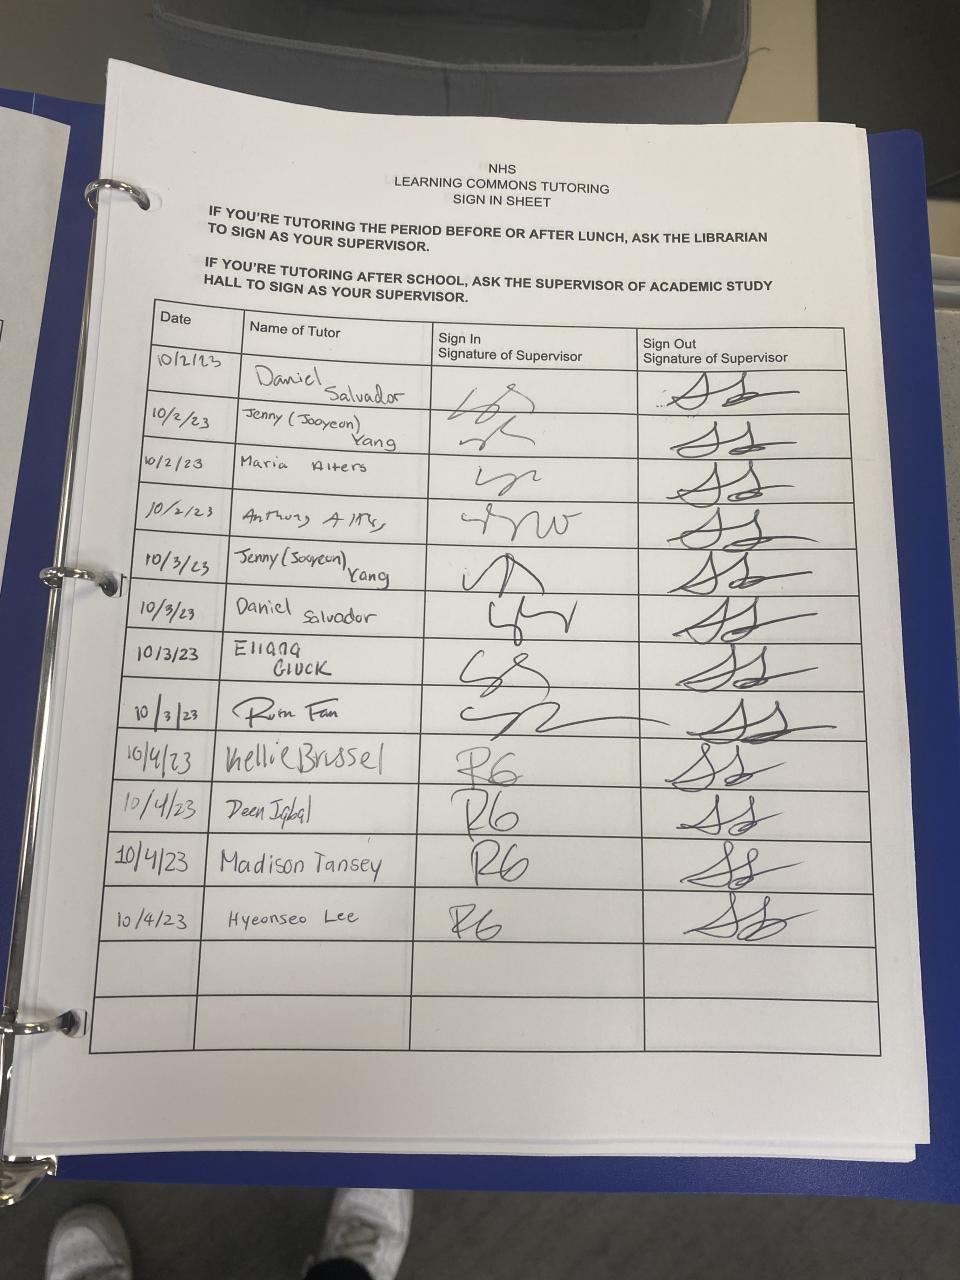 NHS
LEARNING COMMONS TUTORING
SIGN IN SHEET
IF YOU'RE TUTORING THE PERIOD BEFORE OR AFTER LUNCH, ASK THE LIBRARIAN
TO SIGN AS YOUR SUPERVISOR.
IF YOU'RE TUTORING AFTER SCHOOL, ASK THE SUPERVISOR OF ACADEMIC STUDY
HALL TO SIGN AS YOUR SUPERVISOR.
Date Name of Tutor Sign In Signature of Supervisor Sign Out Signature of Supervisor
10/2/23 Daniel Salvador
10/2/23 Jenny (Jooyeon) Yang
10/2/23 Maria Alters
10/2/23 Anthony
10/3/23 Jenny (Jooyeon) Yang
10/3/23 Daniel Salvador
10/3/23 Eliana Gluck
10/3/23 Fan
10/4/23 Kellie Brussel RG
10/4/23 Deen Iqbal RG
10/4/23 Madison Tansey RG
10/4/23 Hyeonseo Lee RG